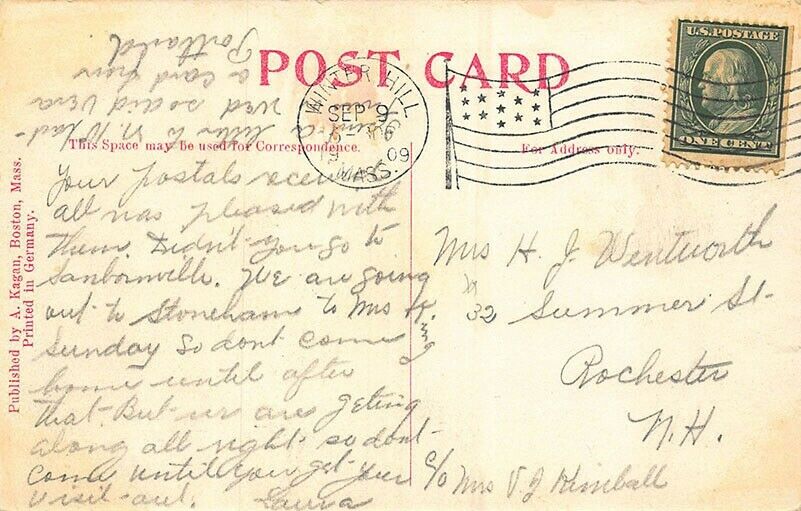 POST CARD
This Space may be used for Correspondence.
For Address only.
WINTER HILL
SEP 9
09
MASS.
U.S. POSTAGE
ONE CENT
Published by A. Kagan, Boston, Mass.
Printed in Germany.
Your postals
all was pleased with
them. Didn't you go to
Sanbornville. We are going
out to Stoneham to Mrs King
Sunday so dont come
home until after
that. But we are geting
along all right so dont
come until you get your
visit out. Laura
a letter to
Wed said Vera
a card from
Portland
Mrs H. J. Wentworth
32 Summer St.
Rochester
N.H.
c/o Mrs V J Kimball